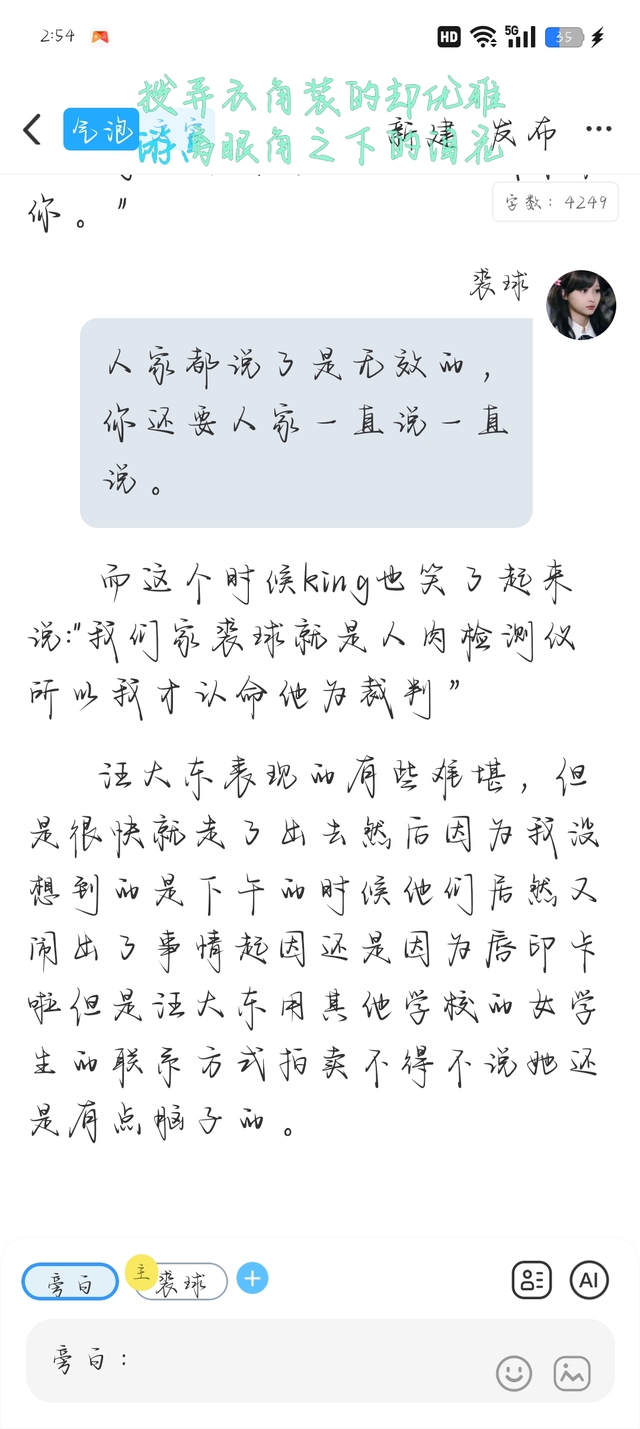 2:54
HD
5G
35
拨弄衣角装的却优雅
气泡
新建
发布
字数：4249
你。"
裘球
人家都说了是无效的，
你还要人家一直说一直
说。
而这个时候king也笑了起来
说:"我们家裘球就是人肉检测仪
所以我才认命他为裁判”
汪大东表现的有些难堪，但
是很快就走了出去然后因为我没
想到的是下午的时候他们居然又
闹出了事情起因还是因为唇印卡
啦但是汪大东用其他学校的女学
生的联系方式拍卖不得不说她还
是有点脑子的。
旁白
主
裘球
AI
旁白：